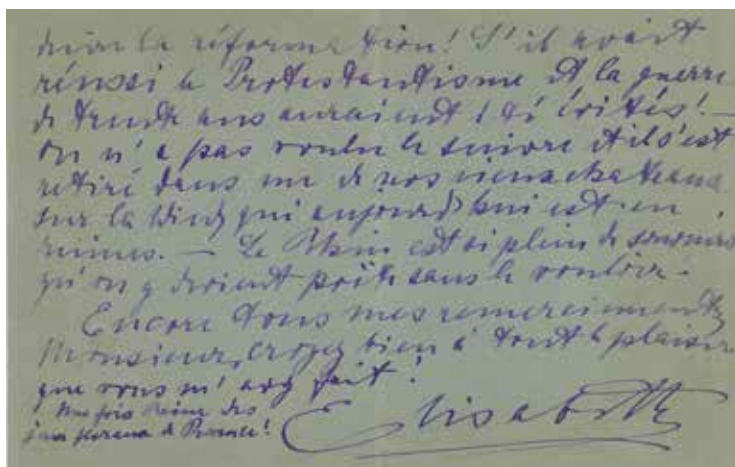 la réformation! S'il avait
réussi le Protestantisme et la guerre
de trente ans auraient été évités! —
on n'a pas voulu le suivre et il s'est
retiré dans un de nos vieux chateaux
sur la Wied qui aujourd'hui est en
ruines. — Le Rhin est si plein de souvenirs
qu'on y devient poète sans le vouloir.
Encore tous mes remerciements
Monsieur, croyez bien à tout le plaisir
que vous m'avez fait!
Une fois Reine des
jeux floraux de Provence!
Elisabeth